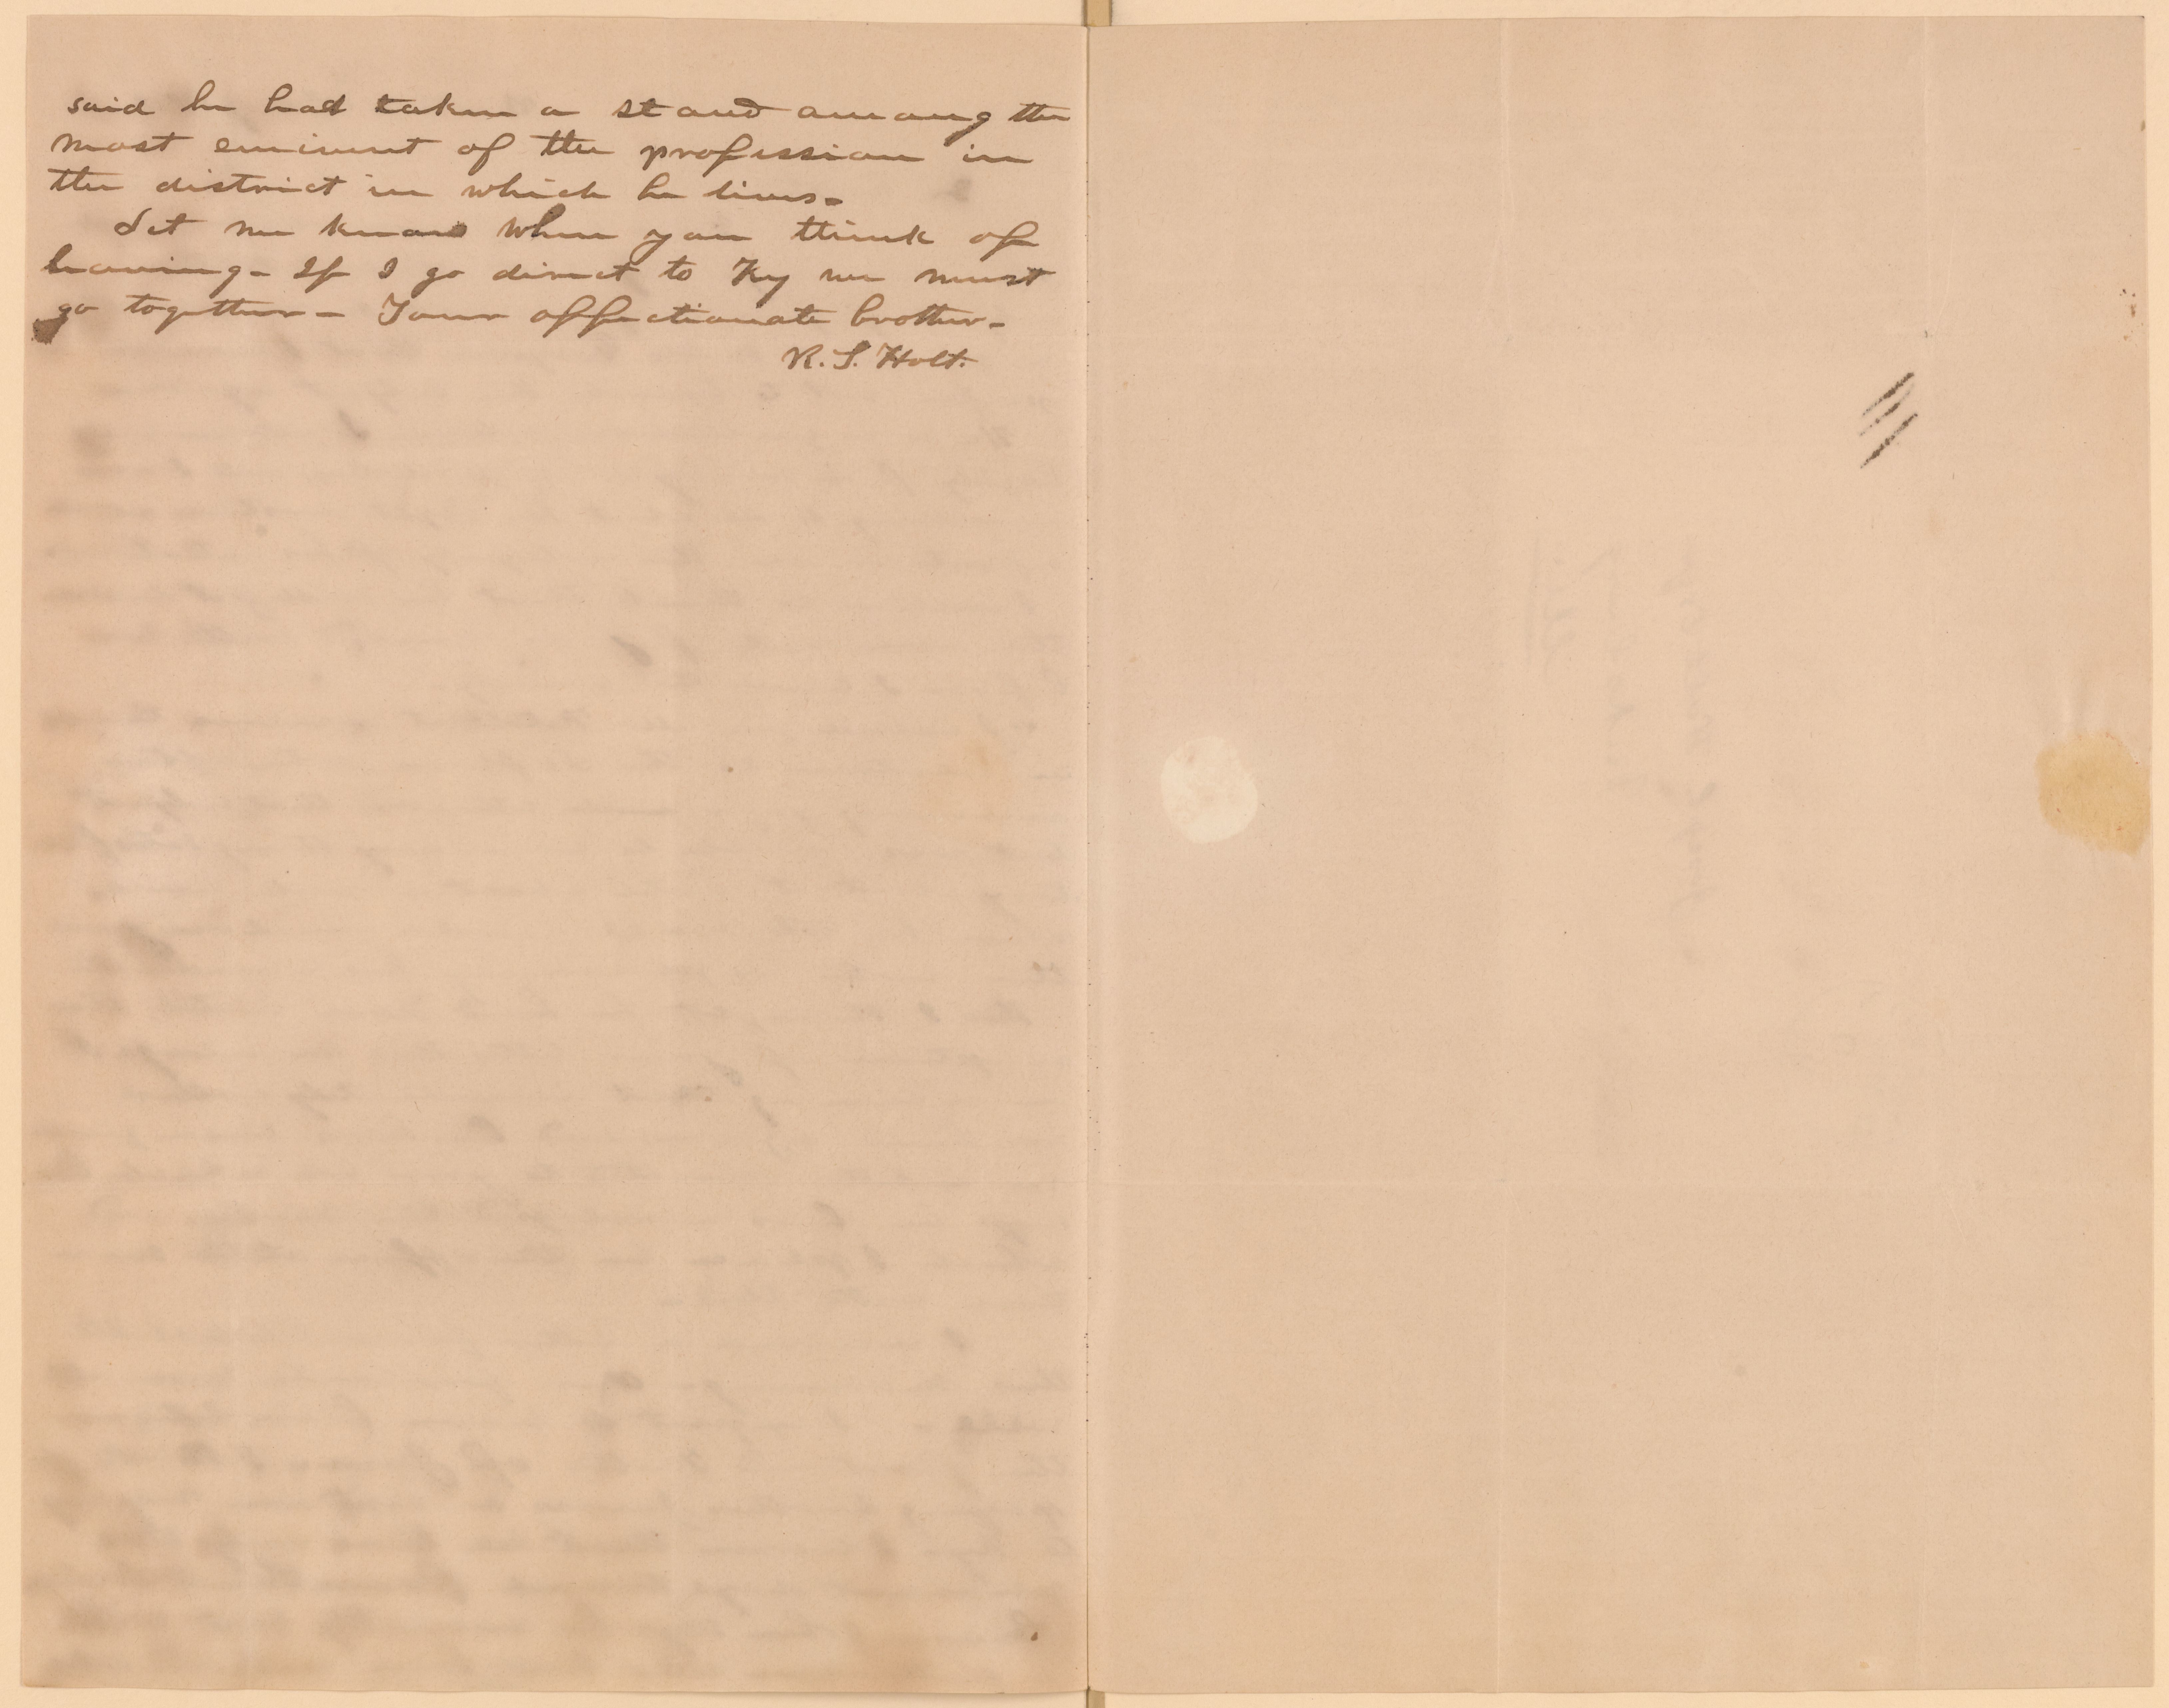 said he had taken a stand among the
most eminent of the profession in
the district in which he lives-
Let me know when you think of
leaving- If I go direct to Ky we must
go together- Your affectionate brother-
R. S. Holt.